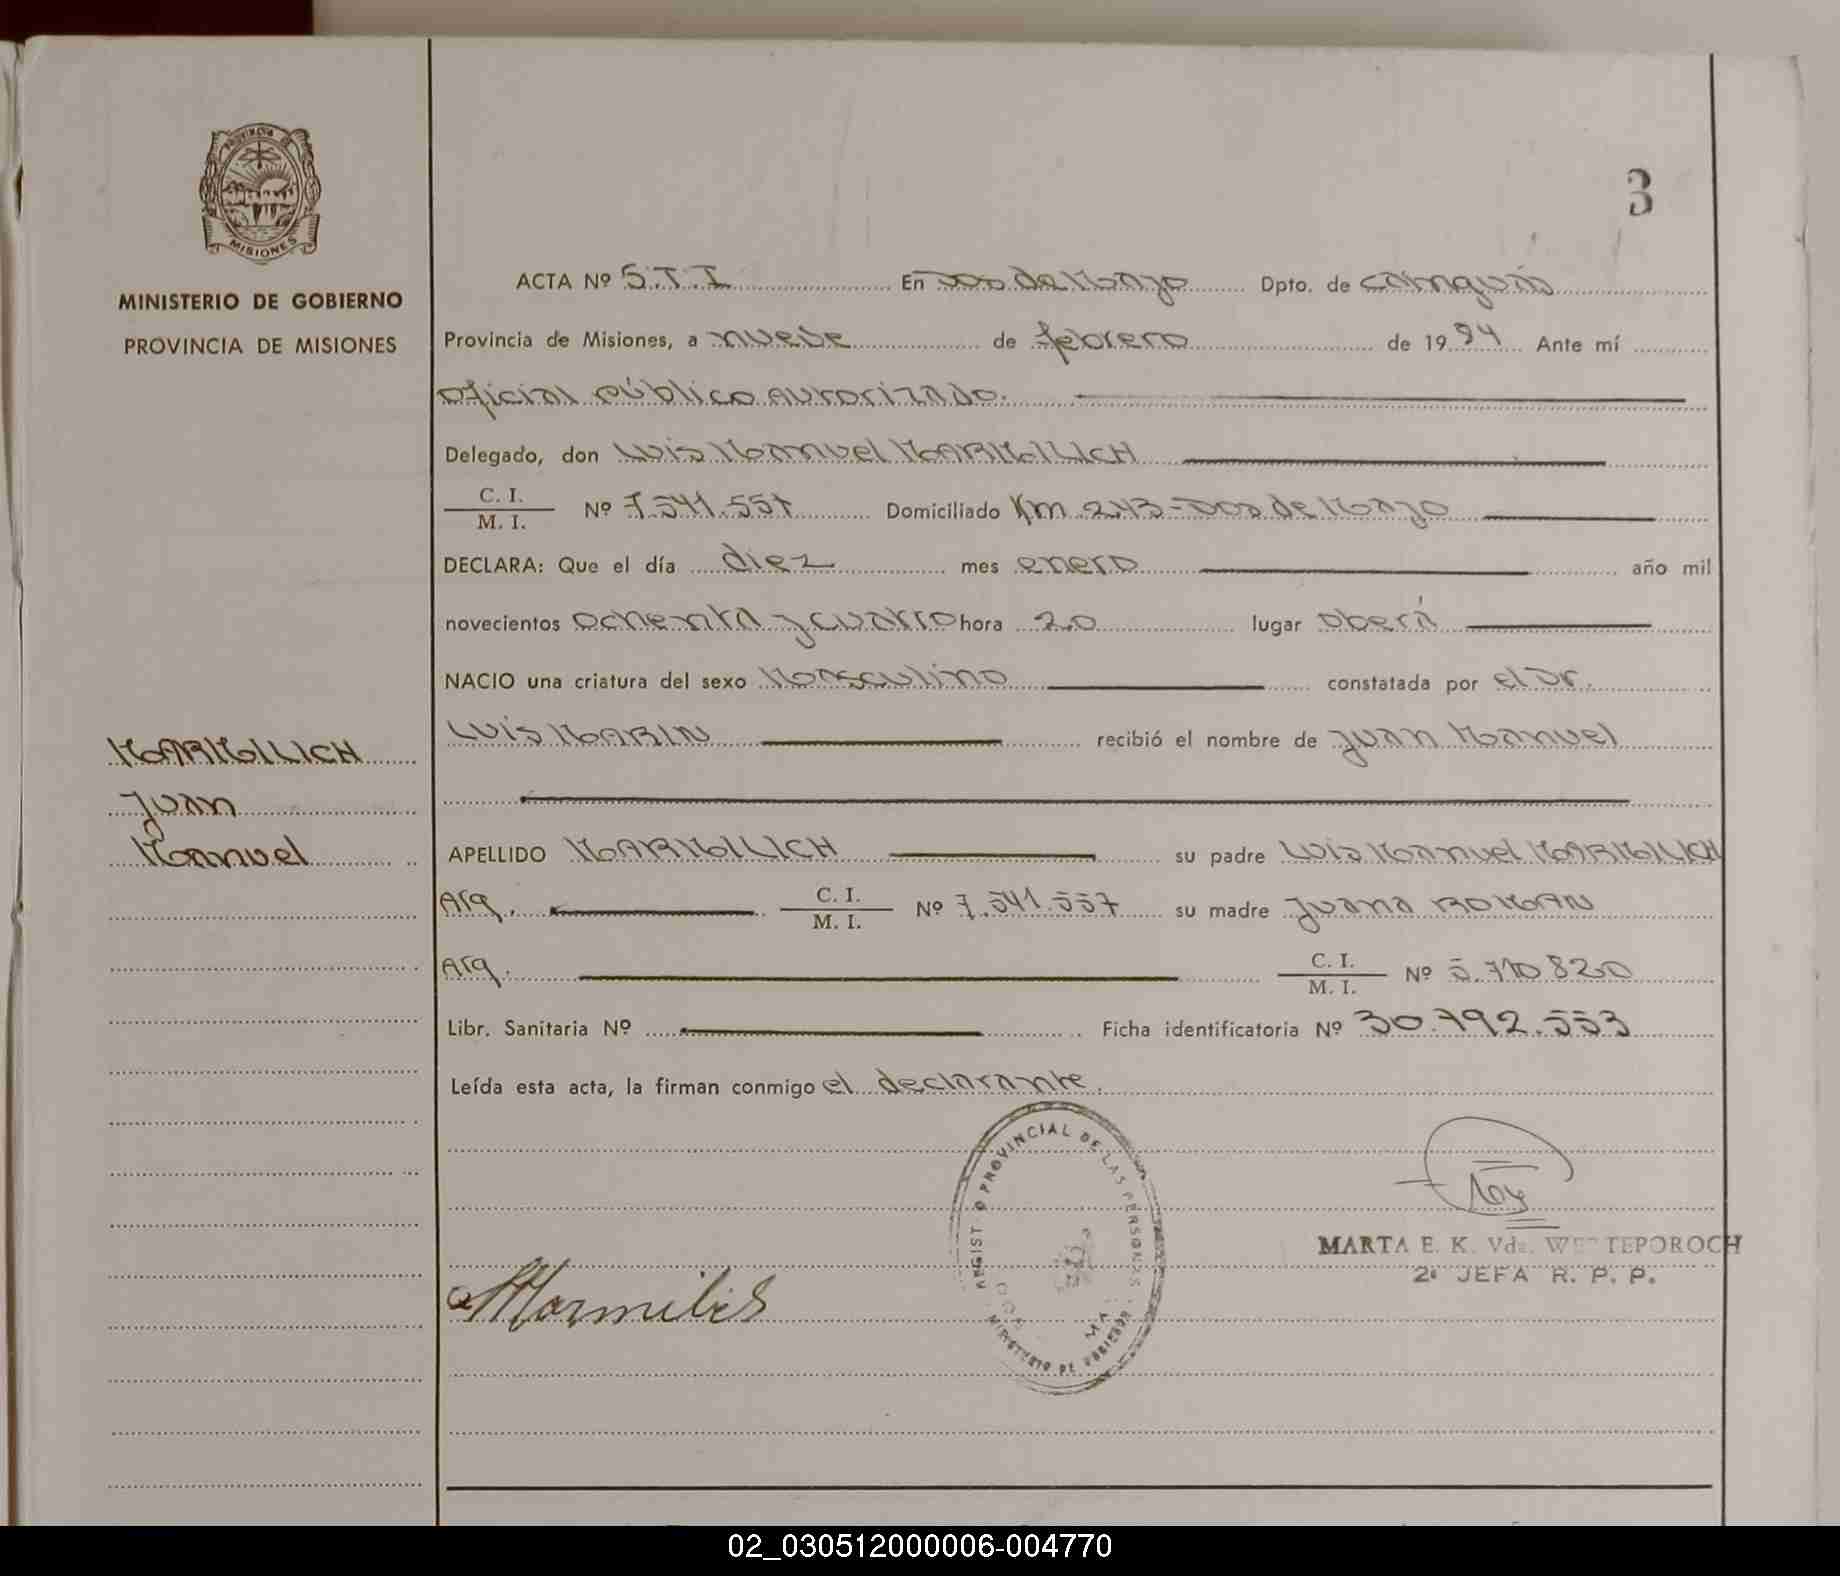 PROVINCIA DE
MISIONES
MINISTERIO DE GOBIERNO
PROVINCIA DE MISIONES
3
ACTA Nº 5.T.I En Dos de Mayo Dpto. de Cainguás
Provincia de Misiones, a nueve de febrero de 1984 Ante mí
Oficial público autorizado.
Delegado, don Luis Manuel MARMILICH
C. I.
M. I. Nº 7.541.557 Domiciliado Km 243 - Dos de Mayo
DECLARA: Que el día diez mes enero año mil
novecientos ochenta y cuatro hora 20 lugar Oberá
NACIO una criatura del sexo Masculino constatada por el Dr.
Luis MARIN recibió el nombre de Juan Manuel
MARMILICH
Juan
Manuel
APELLIDO MARMILICH su padre Luis Manuel MARMILICH
Arg. C. I.
M. I. Nº 7.541.557 su madre Juana ROMAN
Arg. C. I.
M. I. Nº 5.710.820
Libr. Sanitaria Nº Ficha identificatoria Nº 30.792.553
Leída esta acta, la firman conmigo el declarante.
PROVINCIAL DE LAS PERSONAS
MINISTERIO DE GOBIERNO
MARTA E. K. Vda.
2ª JEFA R. P. P.
02_030512000006-004770